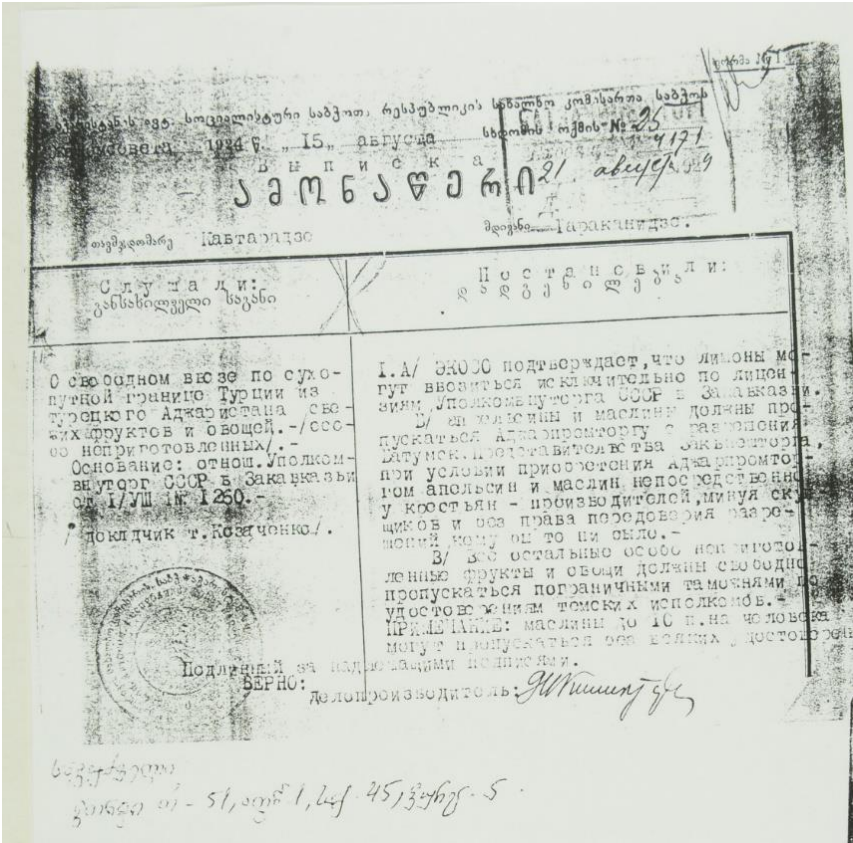 ფორმა №1
სოციალისტური საბჭოთ. რესპუბლიკის სახალხო კომისართა საბჭოს
1924 г. „15„ августа სხდომის ოქმის № 25
Выписка
21 август
ამონაწერი
თავმჯდომარე Кавтарадзе მდივანი Тараканидзе.
Слушали: Постановили:
განსახილველი საგანი დადგენილება
О свободном ввозе по сухо-
путной границе Турции из
турецкого Аджаристана све-
жих фруктов и овощей.-/осо-
бо неприготовленных/.-
Основание: отнош.Уполком-
внуторг СССР в Закавказьи
од 1/УШ № 1260.-
/докладчик т.Козаченко/.
I.А/ ЭКОСО подтверждает,что лимоны мо-
гут ввозиться исключительно по лицен-
зиям Уполкомвнуторга СССР в Закавказьи.
Б/ апельсины и маслины должны про-
пускаться Аджарпромторгу с разрешения
Батумск.Представительства Заквнешторга,
при условии приобретения Аджарпромтор-
гом апельсин и маслин непосредственно
у крестьян - производителей,минуя скуп-
щиков и без права передоверия разре-
шений кому бы то ни было.-
В/ Все остальные особо неприготов-
ленные фрукты и овощи должны свободно
пропускаться пограничными таможнями по
удостоверениям темских исполкомов.-
ПРИМЕЧАНИЕ: маслины до 10 п.на человека
могут пропускаться без всяких удостоверен
Подлинный за надлежащими подписями.
ВЕРНО:
Делопроизводитель: